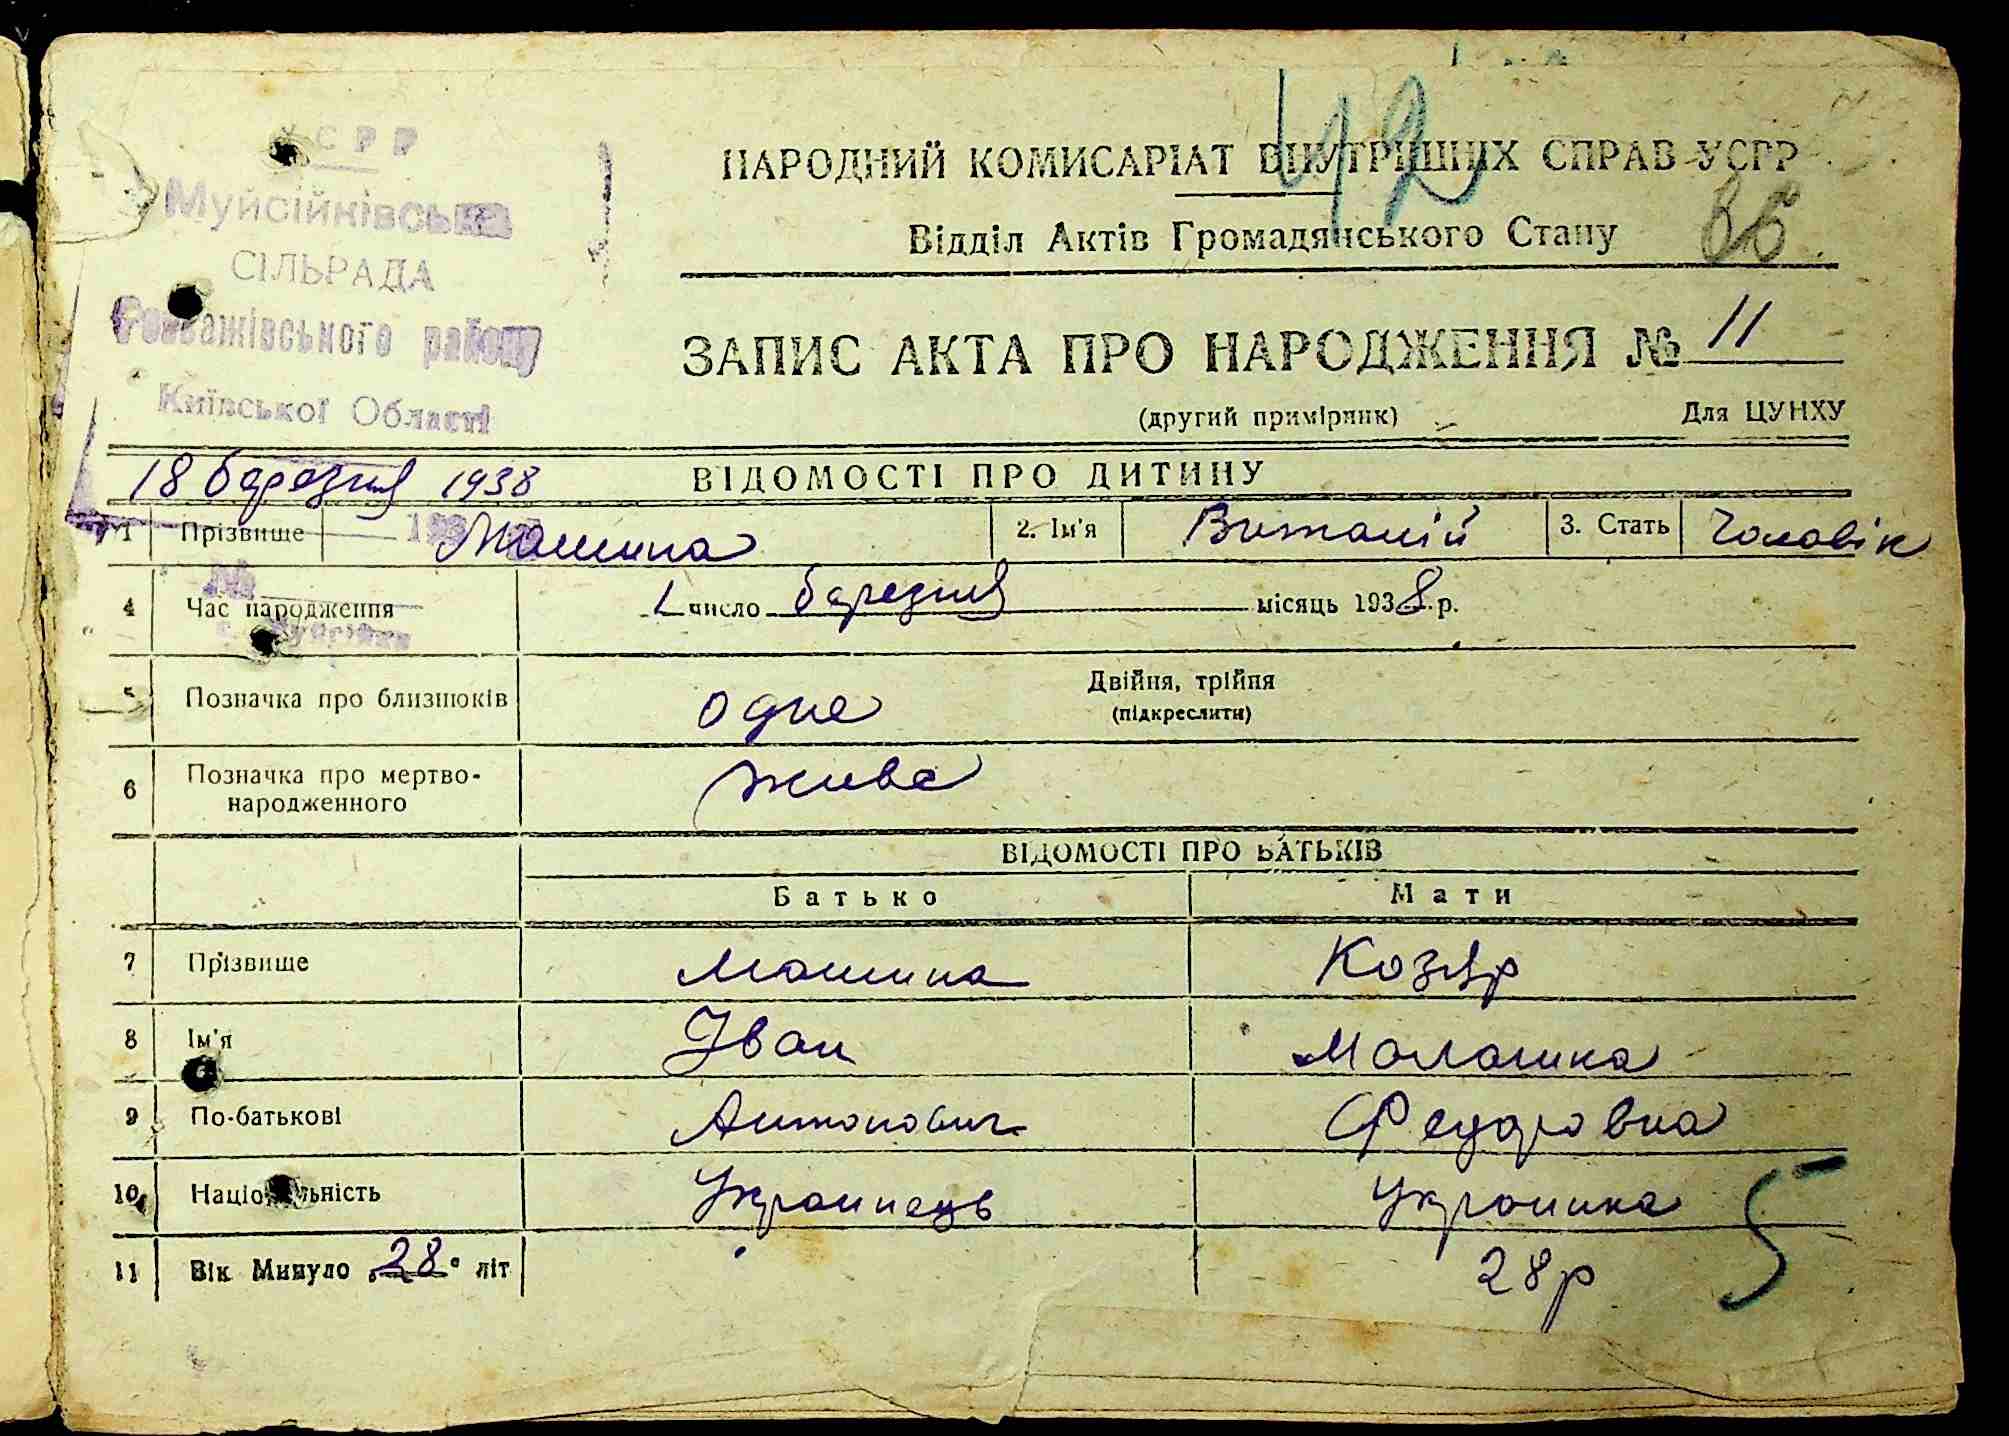 УСРР
Муйсійківська
СІЛЬРАДА
Розважівського району
Київської Області
42
НАРОДНИЙ КОМИСАРІАТ ВНУТРІШНІХ СПРАВ УСРР
Відділ Актів Громадянського Стану
ЗАПИС АКТА ПРО НАРОДЖЕННЯ № 11
(другий примірник) Для ЦУНХУ
18 березня 1938 ВІДОМОСТІ ПРО ДИТИНУ
1 Прізвище Машина 2. Ім'я Виталій 3. Стать Чоловік
4 Час народження 1 число березня місяць 1938 р.
5 Позначка про близнюків одне Двійня, трійня
(підкреслити)
6 Позначка про мертво-
народженного живе
ВІДОМОСТІ ПРО БАТЬКІВ
Батько Мати
7 Прізвище Машина Козяр
8 Ім'я Іван Малашка
9 По-батькові Антонович Федоровна
10 Національність Украинець Украинка
11 Вік Минуло 28 літ 28 р
5